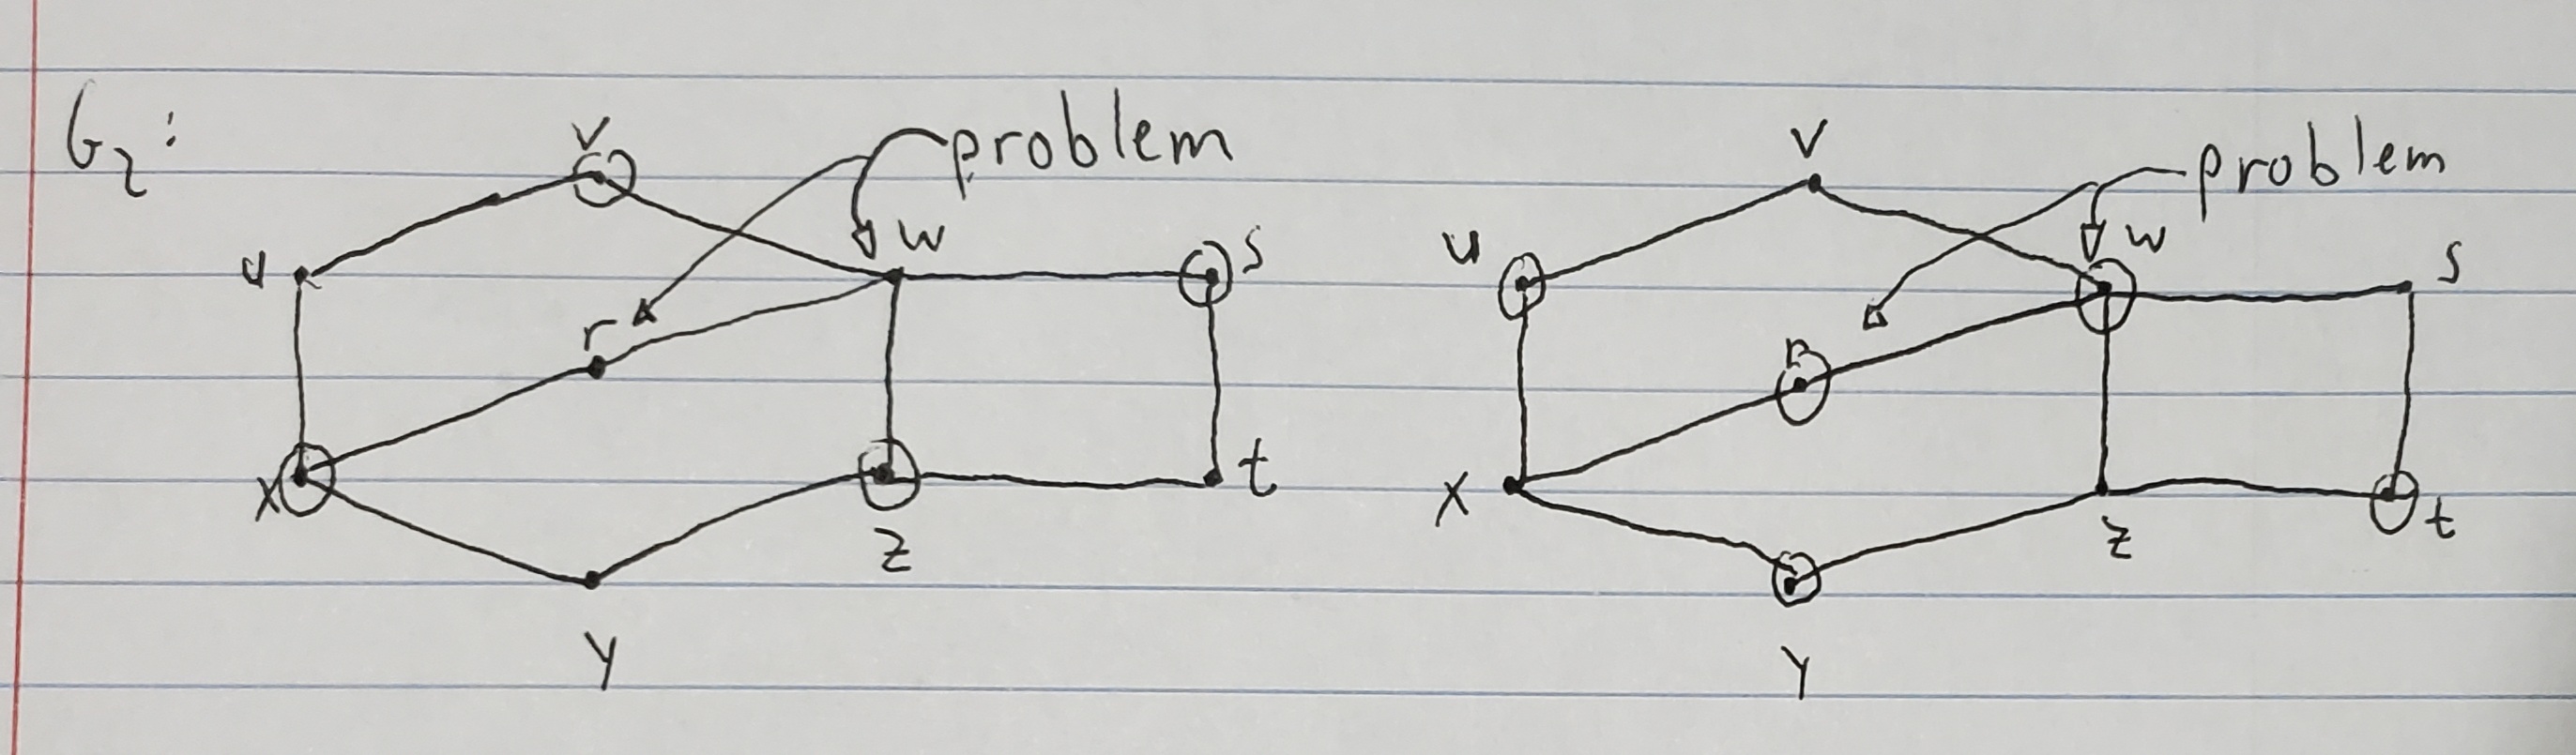 G₂:
v
problem
u
w
s
r
x
z
t
y
v
problem
u
w
s
r
x
z
t
y